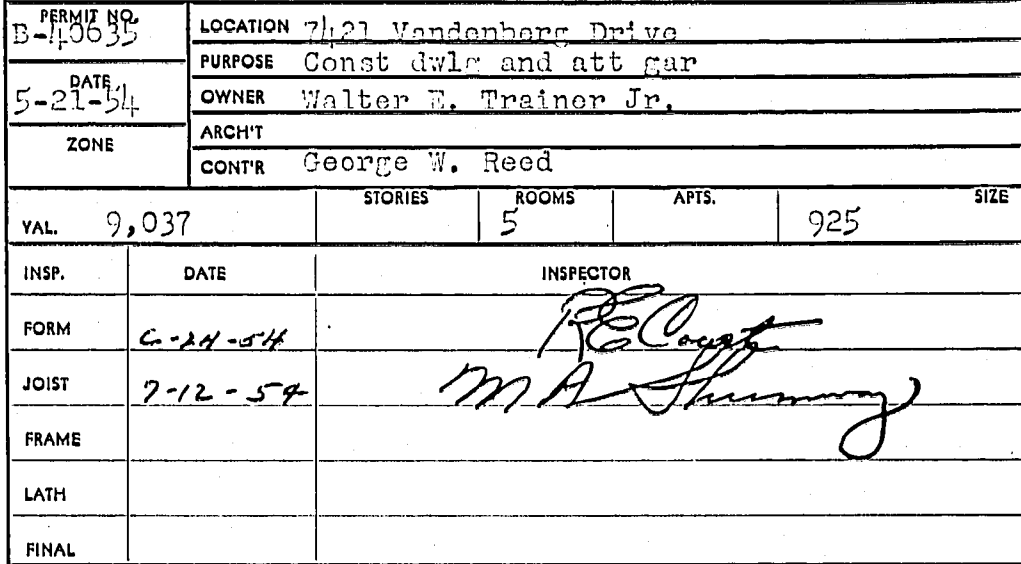 PERMIT NO. B-40635
LOCATION 7421 Vandenberg Drive
PURPOSE Const dwlg and att gar
DATE 5-21-54
OWNER Walter E. Trainor Jr.
ZONE
ARCH'T
CONT'R George W. Reed
VAL. 9,037 STORIES ROOMS 5 APTS. 925 SIZE
INSP. DATE INSPECTOR
FORM 6-24-54 R E
JOIST 7-12-54 M A Shumway
FRAME
LATH
FINAL